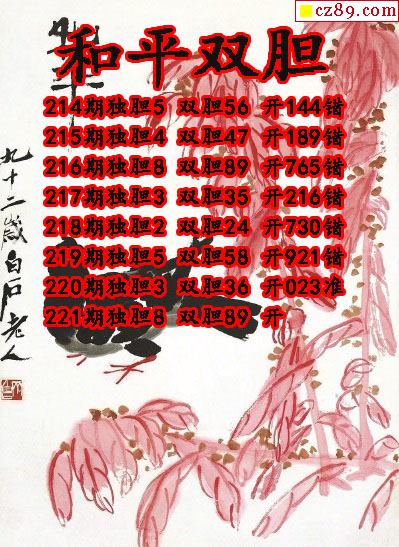 cz89.com
和平双胆
214期独胆5 双胆56 开144错
215期独胆4 双胆47 开189错
216期独胆8 双胆89 开765错
217期独胆3 双胆35 开216错
218期独胆2 双胆24 开730错
219期独胆5 双胆58 开921错
220期独胆3 双胆36 开023准
221期独胆8 双胆89 开
九十二岁白石老人